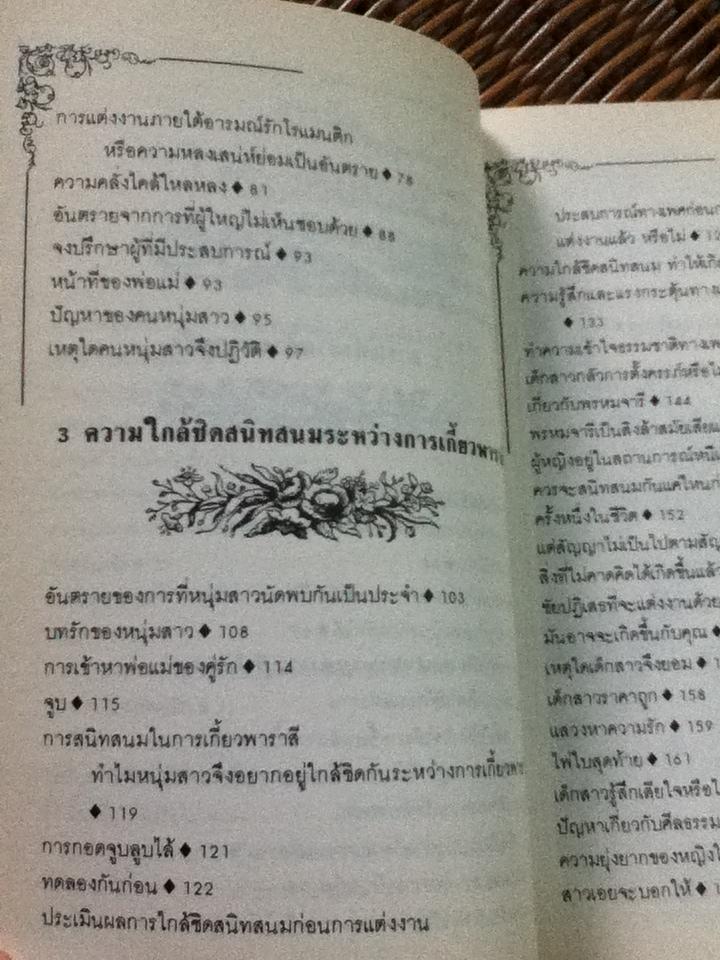 การแต่งงานภายใต้อารมณ์รักโรแมนติก
หรือความหลงเสน่ห์ย่อมเป็นอันตราย ◆ 78
ความคลั่งไคล้ใหลหลง ◆ 81
อันตรายจากการที่ผู้ใหญ่ไม่เห็นชอบด้วย ◆ 88
จงปรึกษาผู้ที่มีประสบการณ์ ◆ 93
หน้าที่ของพ่อแม่ ◆ 93
ปัญหาของคนหนุ่มสาว ◆ 95
เหตุใดคนหนุ่มสาวจึงปฏิวัติ ◆ 97
3 ความใกล้ชิดสนิทสนมระหว่างการเกี้ยวพารา
อันตรายของการที่หนุ่มสาวนัดพบกันเป็นประจำ ◆ 103
บทรักของหนุ่มสาว ◆ 108
การเข้าหาพ่อแม่ของคู่รัก ◆ 114
จูบ ◆ 115
การสนิทสนมในการเกี้ยวพาราสี
ทำไมหนุ่มสาวจึงอยากอยู่ใกล้ชิดกันระหว่างการเกี้ยวพา
◆ 119
การกอดจูบลูบไล้ ◆ 121
ทดลองกันก่อน ◆ 122
ประเมินผลการใกล้ชิดสนิทสนมก่อนการแต่งงาน
ประสบการณ์ทางเพศก่อน
แต่งงานแล้ว หรือไม่ ◆
ความใกล้ชิดสนิทสนม ทำให้
ความรู้สึกและแรงกระตุ้นทาง
◆ 133
ทำความเข้าใจธรรมชาติทาง
เด็กสาวกลัวการตั้งครรภ์หรือ
เกี่ยวกับพรหมจารี ◆ 144
พรหมจารีเป็นสิ่งล้าสมัย
ผู้หญิงอยู่ในสถานการณ์
ควรจะสนิทสนมกันแค่ไหน
ครั้งหนึ่งในชีวิต ◆ 152
แต่สัญญาไม่เป็นไปตาม
สิ่งที่ไม่คาดคิดได้เกิดขึ้นแล้ว
ชัยปฏิเสธที่จะแต่งงานด้วย
มันอาจจะเกิดขึ้นกับคุณ ◆
เหตุใดเด็กสาวจึงยอม ◆
เด็กสาวราคาถูก ◆ 158
แสวงหาความรัก ◆ 159
ไพ่ใบสุดท้าย ◆ 161
เด็กสาวรู้สึกเสียใจหรือ
ปัญหาเกี่ยวกับศีลธรรม
ความยุ่งยากของหญิง
สาวเอยจะบอกให้ ◆